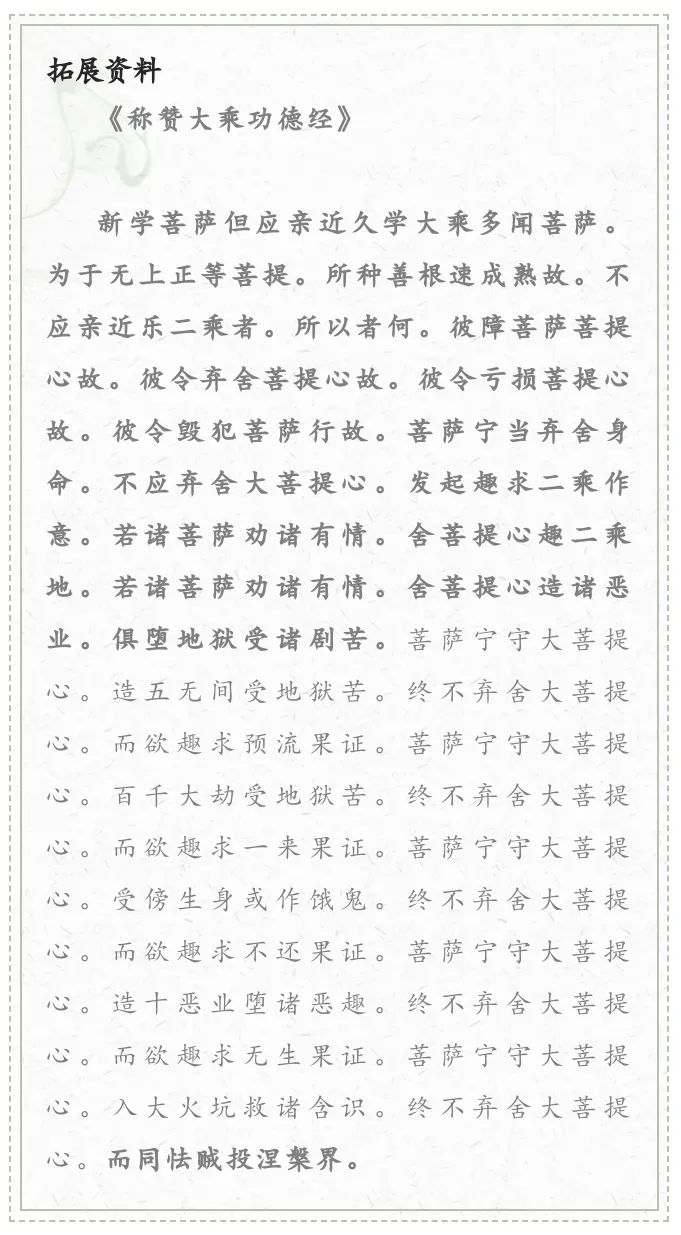 拓展资料
《称赞大乘功德经》
新学菩萨但应亲近久学大乘多闻菩萨。
为于无上正等菩提。所种善根速成熟故。不
应亲近乐二乘者。所以者何。彼障菩萨菩提
心故。彼令弃舍菩提心故。彼令亏损菩提心
故。彼令毁犯菩萨行故。菩萨宁当弃舍身
命。不应弃舍大菩提心。发起趣求二乘作
意。若诸菩萨劝诸有情。舍菩提心趣二乘
地。若诸菩萨劝诸有情。舍菩提心造诸恶
业。俱堕地狱受诸剧苦。菩萨宁守大菩提
心。造五无间受地狱苦。终不弃舍大菩提
心。而欲趣求预流果证。菩萨宁守大菩提
心。百千大劫受地狱苦。终不弃舍大菩提
心。而欲趣求一来果证。菩萨宁守大菩提
心。受傍生身或作饿鬼。终不弃舍大菩提
心。而欲趣求不还果证。菩萨宁守大菩提
心。造十恶业堕诸恶趣。终不弃舍大菩提
心。而欲趣求无生果证。菩萨宁守大菩提
心。入大火坑救诸含识。终不弃舍大菩提
心。而同怯贼投涅槃界。